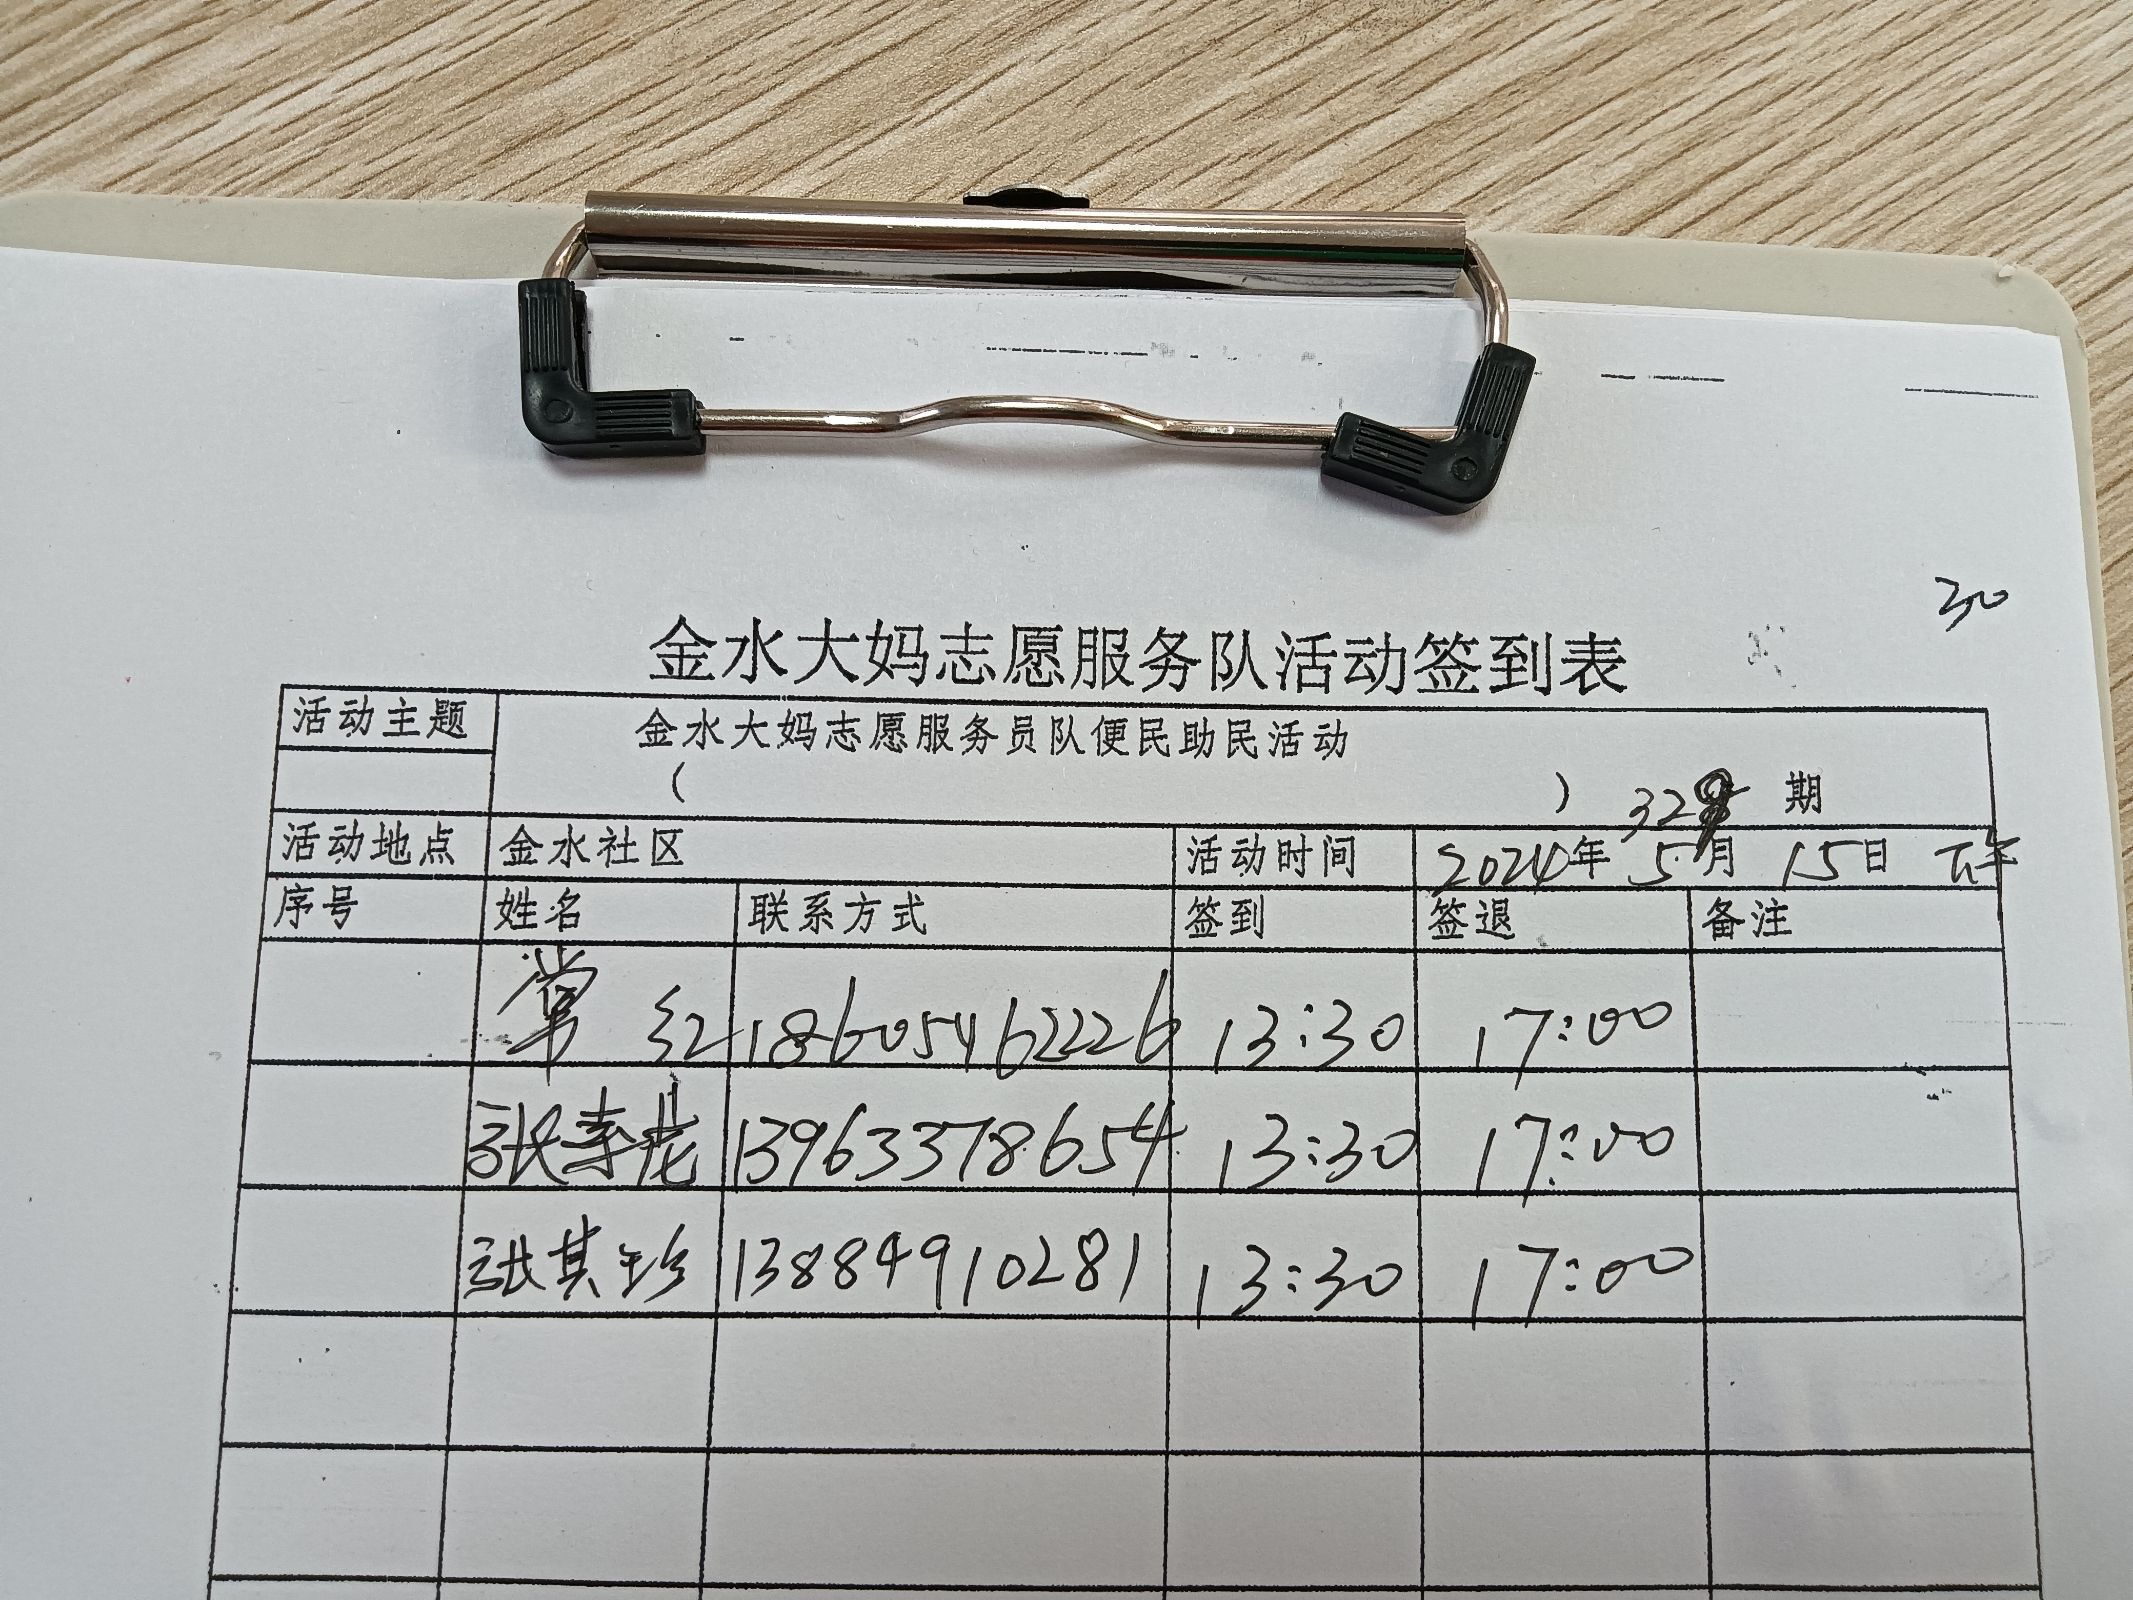 30
金水大妈志愿服务队活动签到表
活动主题 金水大妈志愿服务员队便民助民活动
( ) 329 期
活动地点 金水社区 活动时间 2024年 5月 15日 下午
序号 姓名 联系方式 签到 签退 备注
常红 18605462226 13:30 17:00
张春花 13963378654 13:30 17:00
张其珍 13884910281 13:30 17:00